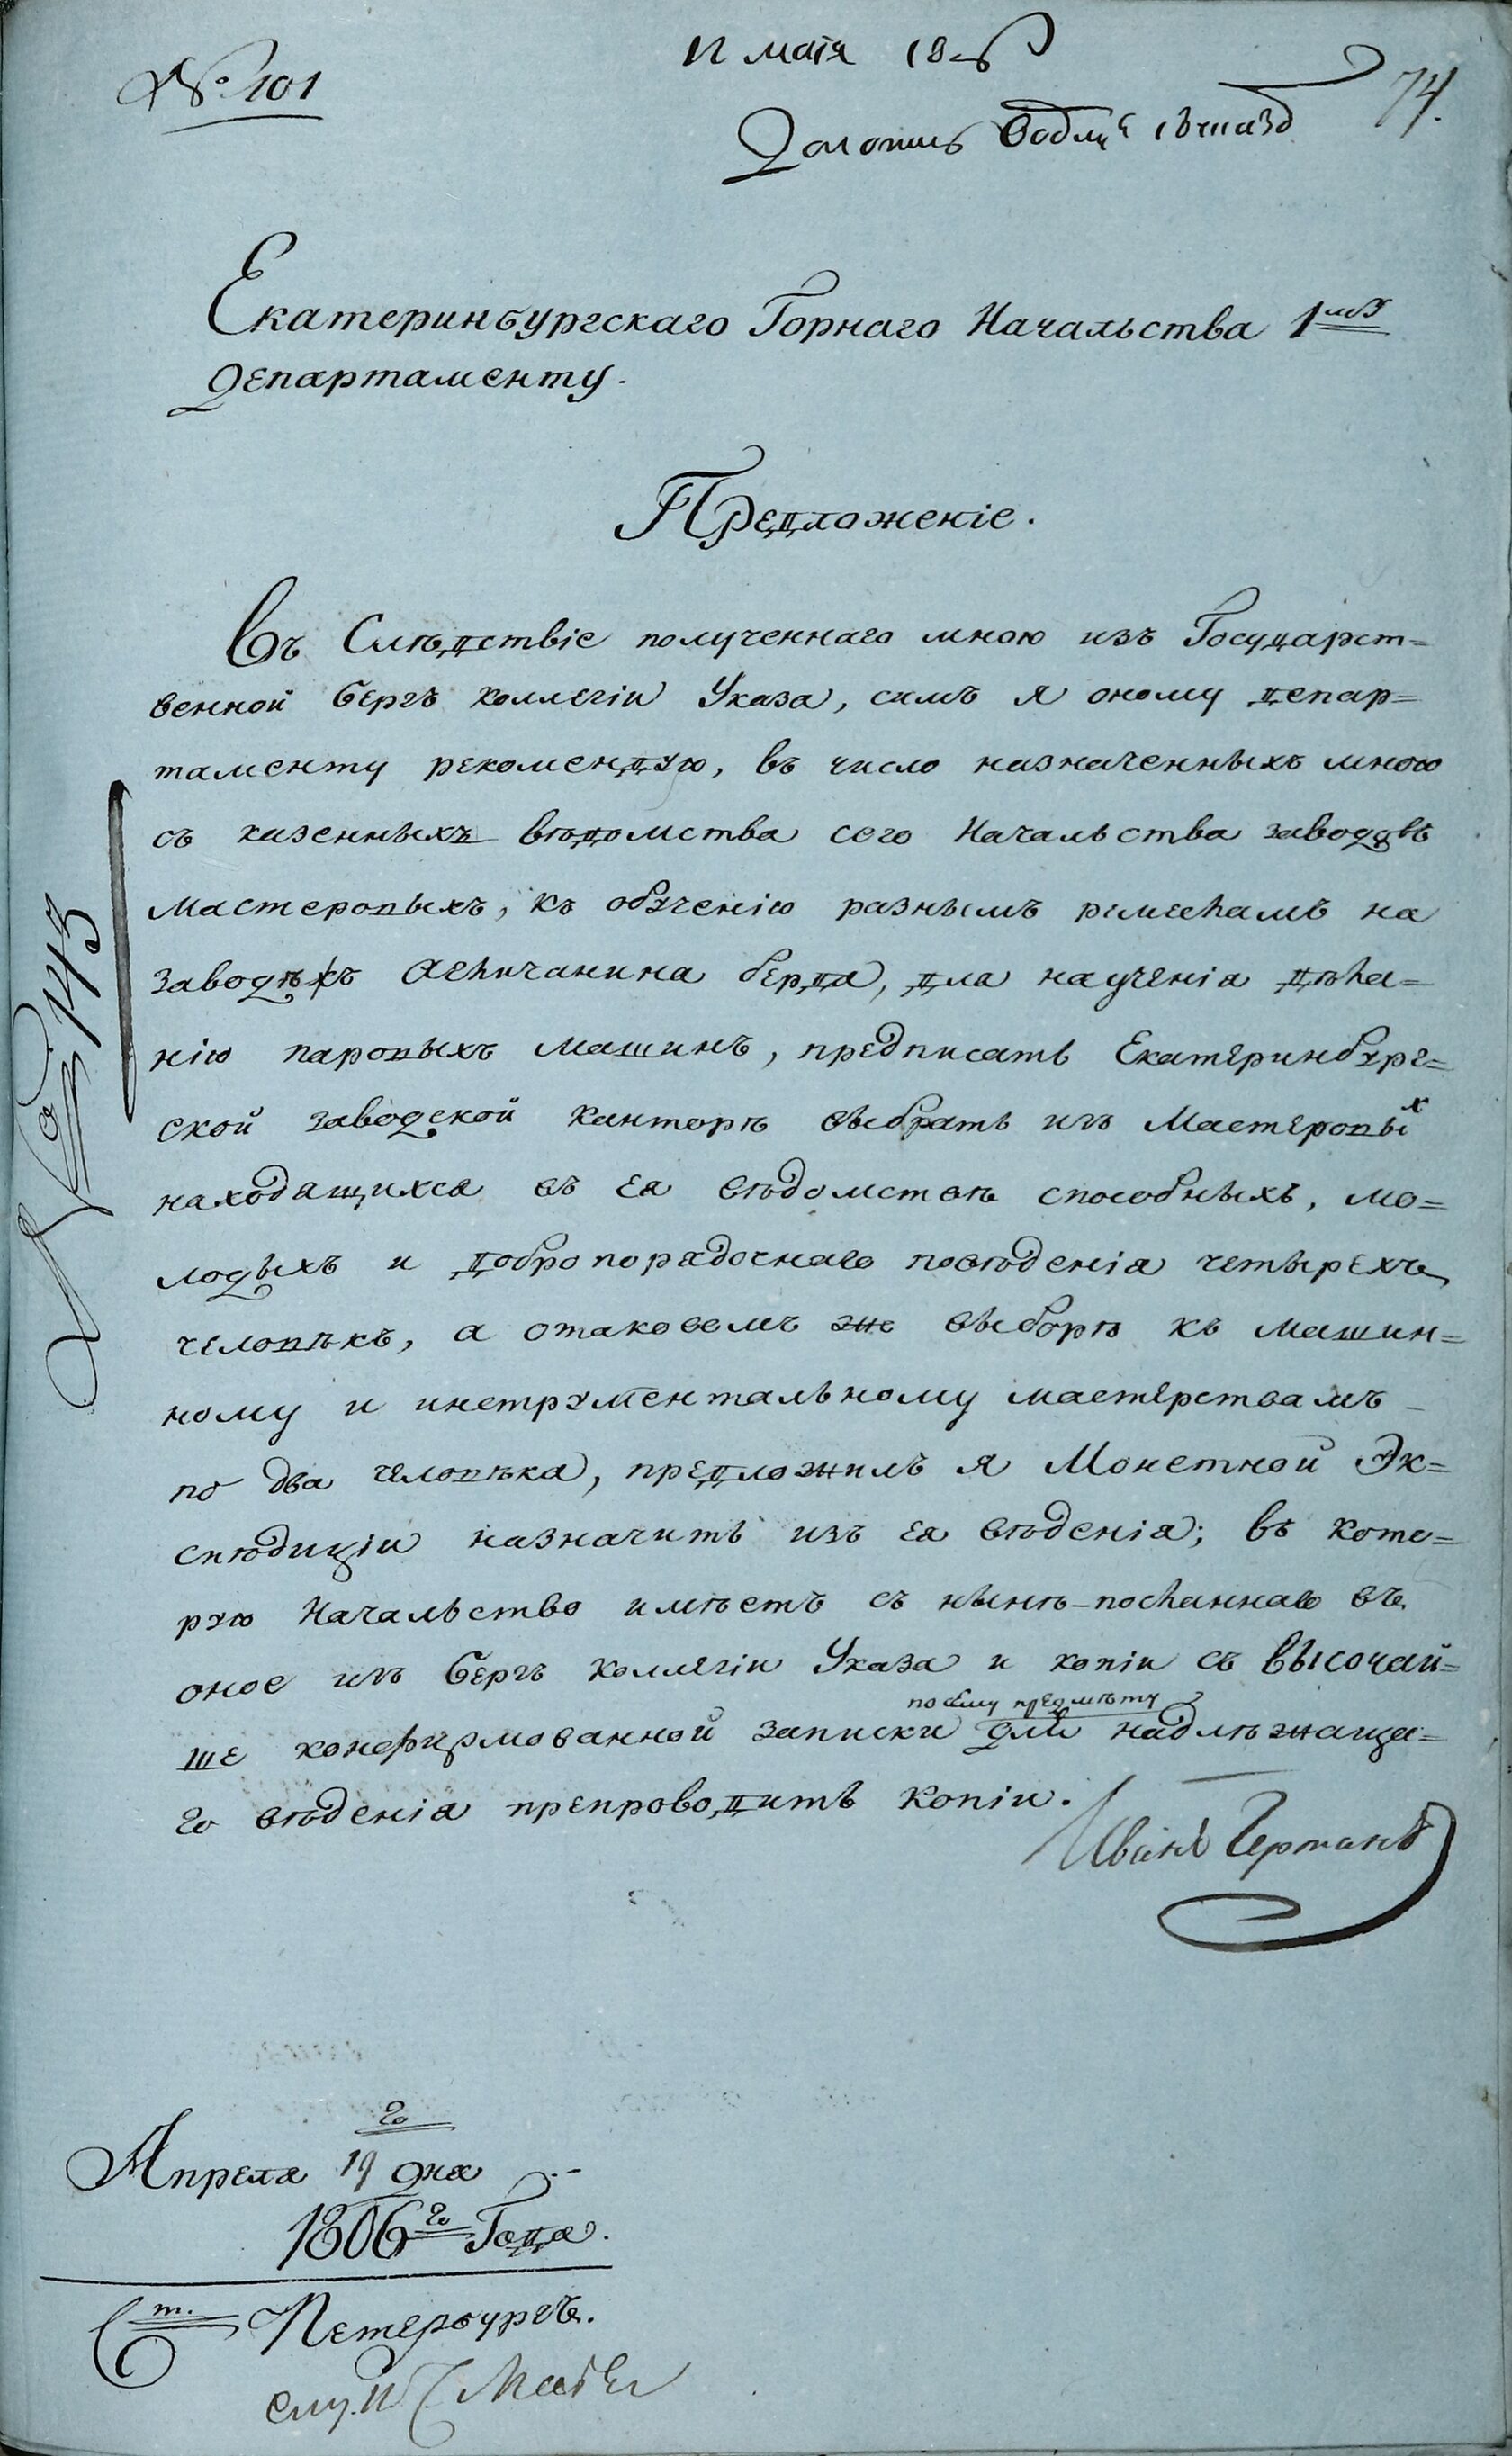 № 101
12 мая 1806
74.
Екатеринбургскаго Горнаго Начальства 1му
департаменту.
Предложеніе.
Въ Слѣдствіе полученнаго мною изъ Государст=
венной бергъ коллегіи Указа, симъ я оному депар=
таменту рекомендую, въ число назначенныхъ мною
съ казенныхъ вѣдомства сего Начальства заводовъ
мастеровыхъ, къ обученію разнымъ ремесламъ на
заводѣхъ Агличанина берда, для научения дѣла=
нію паровыхъ машинъ, предписать Екатеринбург=
ской заводской канторѣ выбрать изъ Мастеровых
находящихся въ ея вѣдомствѣ способныхъ, мо=
лодыхъ и добропорядочнаго повѣденія четырехъ
человѣкъ, а отаковомъ же выборѣ къ машин=
ному и инструментальному мастерствамъ
по два человѣка, предложилъ я Монетной Эк=
спѣдиціи назначить изъ ея вѣденія; въ кото=
рую Начальство имѣетъ съ нынѣ-посланнаго въ
оное изъ Бергъ коллегіи Указа и копіи съ высочай=
по сему предмѣту
ше конфирмованной записки для надлѣжаща=
го вѣденія препроводить копіи.
Иванъ Германъ
Апреля 19го дня
1806го Года.
Ст. Петербургъ.